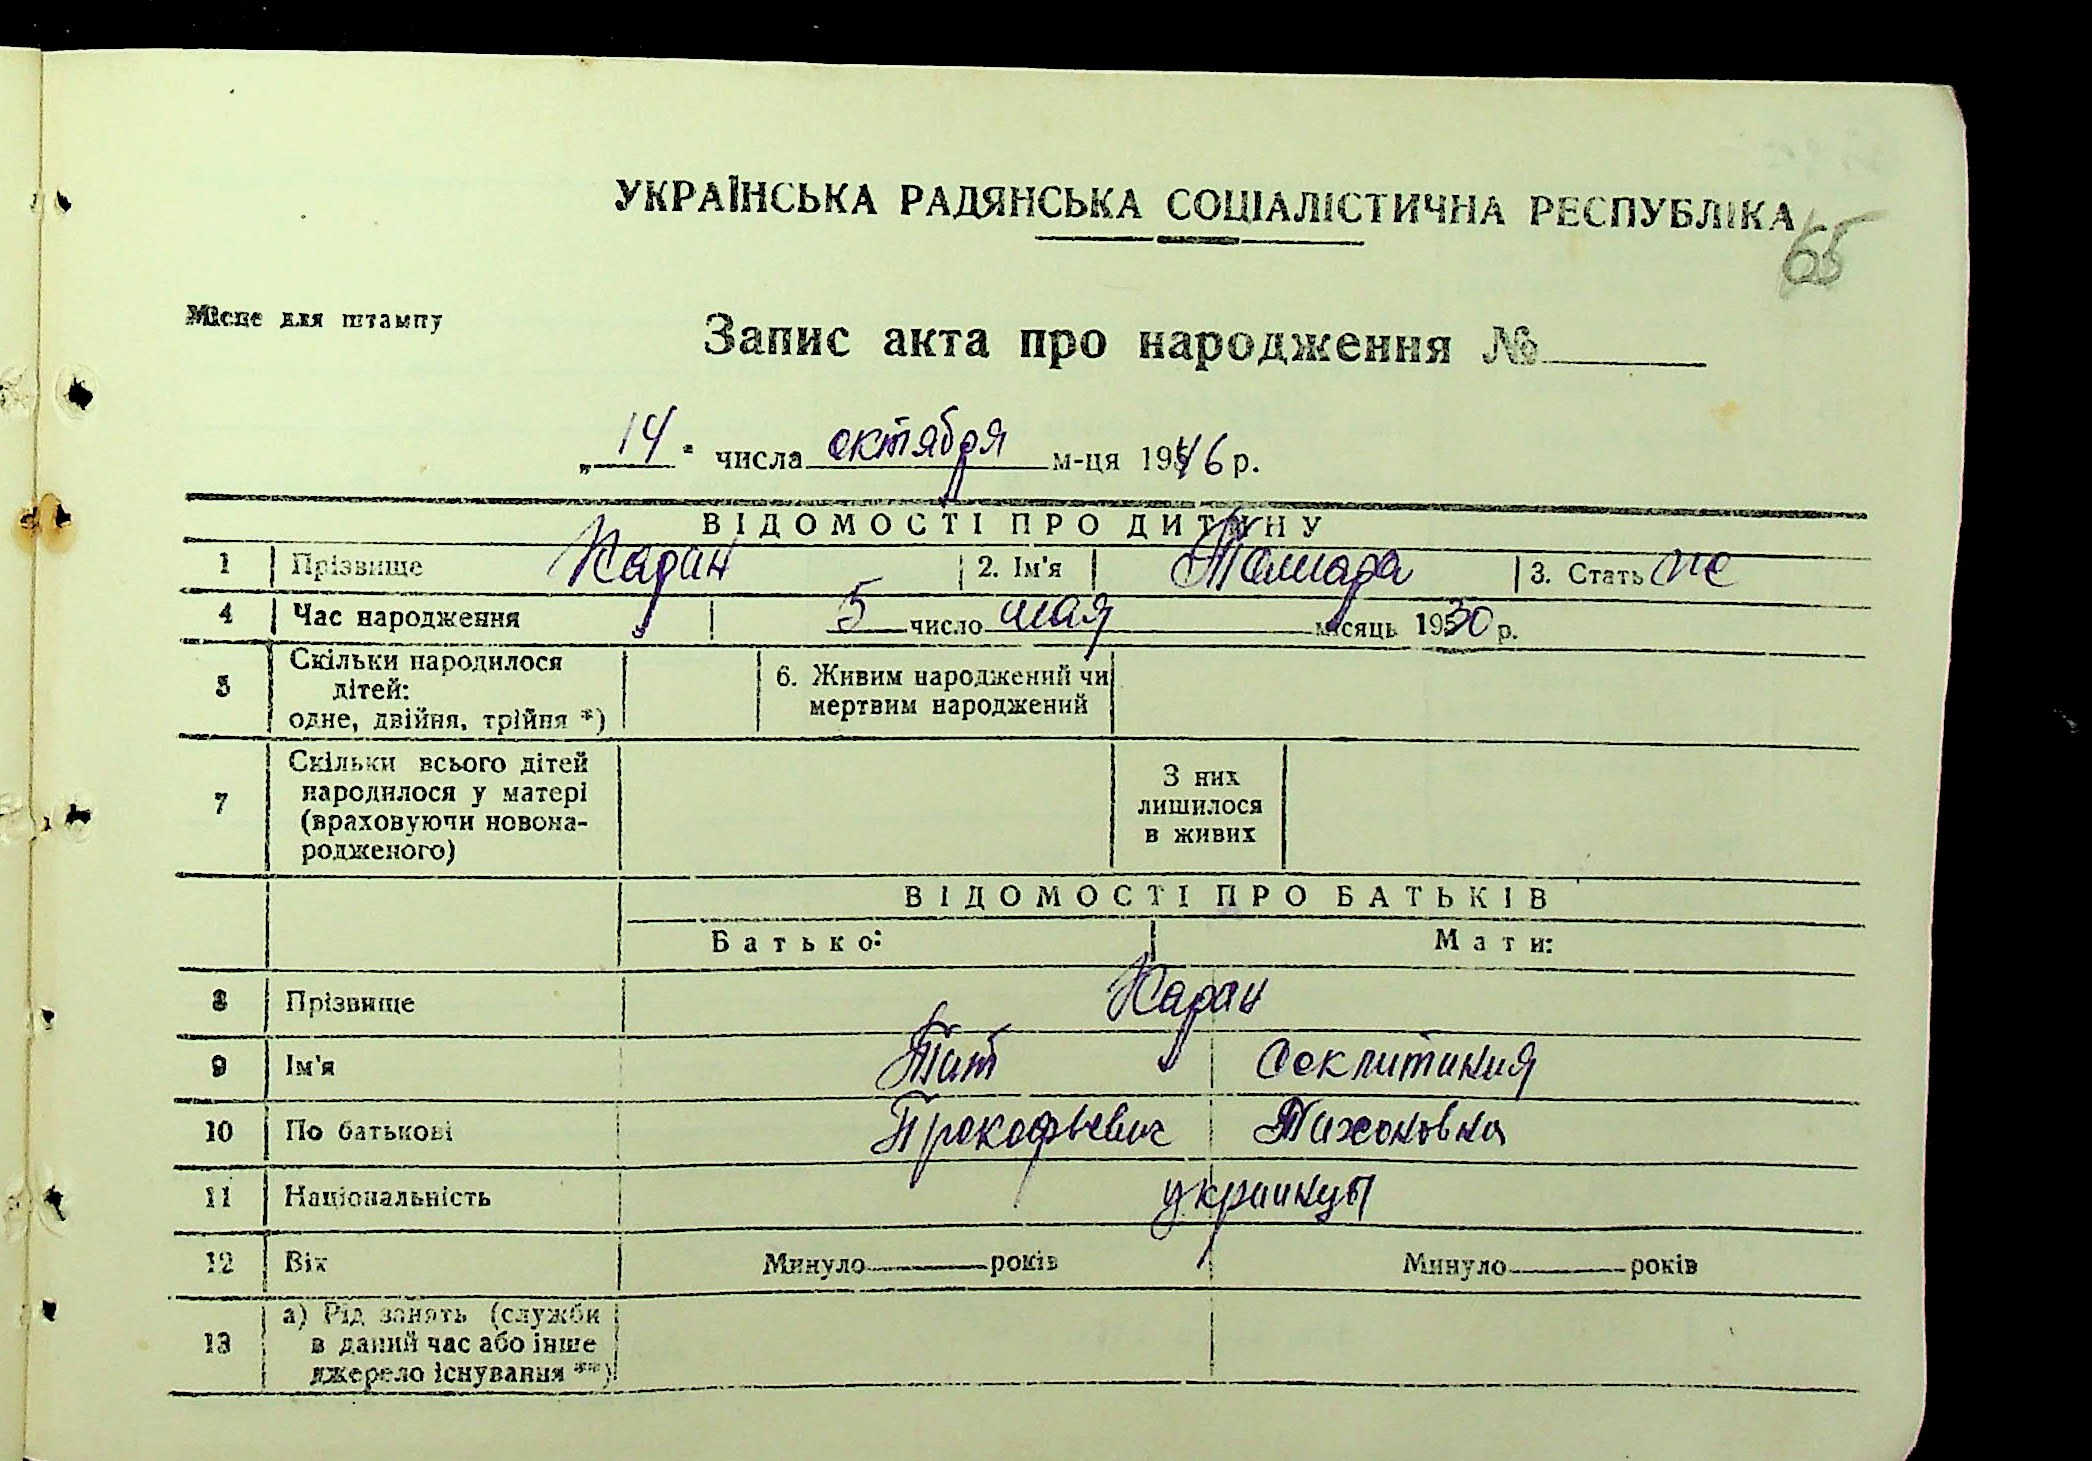 УКРАЇНСЬКА РАДЯНСЬКА СОЦІАЛІСТИЧНА РЕСПУБЛІКА
65
Місце для штампу
Запис акта про народження №
„ 14 " числа октября м-ця 1946 р.
ВІДОМОСТІ ПРО ДИТИНУ
1 Прізвище Каран 2. Ім'я Тамара 3. Стать ж
4 Час народження 5 число мая місяць 1930 р.
5 Скільки народилося дітей: одне, двійня, трійня *) 6. Живим народжений чи мертвим народжений
7 Скільки всього дітей народилося у матері (враховуючи новонародженого) З них лишилося в живих
ВІДОМОСТІ ПРО БАТЬКІВ
Батько: Мати:
8 Прізвище Каран
9 Ім'я Тит Секлитиния
10 По батькові Прокофьевич Тихоновна
11 Національність украинцы
12 Вік Минуло років Минуло років
13 а) Рід занять (служби в даний час або інше джерело існування **)